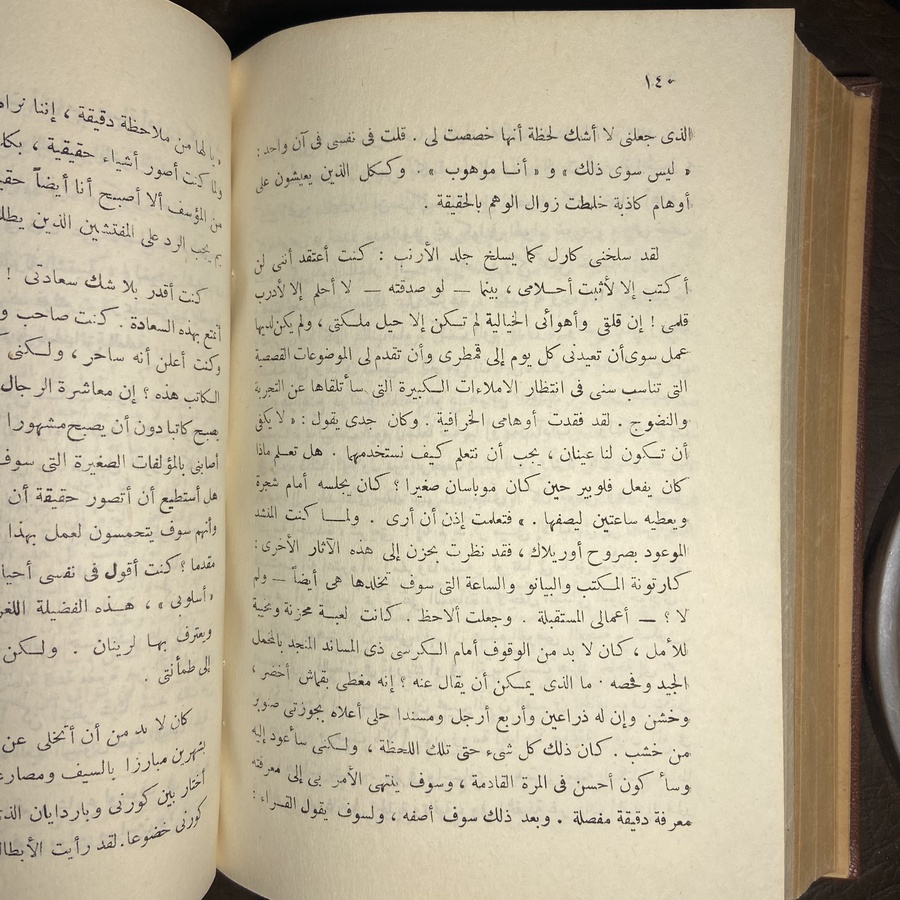 ١٤٠
الذى جعلنى لا أشك لحظة أنها خصصت لى . قلت فى نفسى فى آن واحد :
« ليس سوى ذلك » و « أنــا موهوب » . وككل الذين يعيشون على
أوهام كاذبة خلطت زوال الوهم بالحقيقة .
لقد سلخنى كارل كما يسلخ جلد الأرنب : كنت أعتقد أننى لن
أكتب إلا لأثبت أحــلامى ، بينما — لو صدقته — لا أحلم إلا لأدرب
قلمى ! إن قلقى وأهوائى الخيالية لم تــكن إلا حيل ملـكتى ، ولم يكن لديها
عمل سوى أن تعيدنى كل يوم إلى قمطرى وأن تقدم لى الموضوعات القصصية
التى تناسب سنى فى انتظار الاملاءات الـكبيرة التى سأتلقاها عن التجربة
والنضوج . لقد فقدت أوهامى الخرافية . وكان جدى يقول : « لا يكفى
أن تــكون لنا عينان ، يجب أن نتعلم كيف نستخدمهما . هل تعــلم ماذا
كان يفعل فلوبير حين كــان موباسان صغيرا ؟ كــان يجلسه أمام شجرة
ويعطيه ساعتين ليصفها . » فتعلمت إذن أن أرى . ولمــا كنت المنشد
الموعود بصروح أوريلاك ، فقد نظرت بحزن إلى هذه الآثار الأخرى :
كــارتونة المــكتب والبيانو والساعة التى سوف تخلدها هى أيضاً — ولم
لا ؟ — أعمالى المستقبلة . وجعلت ألاحظ . كــانت لعبــة محزنة ومخيبة
للأمل ، كــان لا بد من الوقوف أمام الــكرسى ذى المساند المنجد بالمخمل
الجيد وفحصه . ما الذى يمــكن أن يقال عنه ؟ إنه مغطى بقماش أخضر ،
وخشن وإن له ذراعين وأربع أرجل ومسندا حلى أعلاه بجوزتى صنوبر
من خشب . كــان ذلك كل شىء حتى تلك اللحظة ، ولــكنى سأعود إليه
وسأكون أحسن فى المرة القادمة ، وسوف ينتهى الأمر بى إلى معرفته
معرفة دقيقة مفصلة . وبعد ذلك سوف أصفه ، ولسوف يقول القــراء :
يا لها من ملاحظة دقيقة ، إننا
ولما كنت أصور أشياء حقيقية ،
من المؤسف ألا أصبح أنا أيضاً
يجب الرد على المفتشين الذين
كنت أقدر بلا شك سعادتى !
أتمتع بهذه السعادة . كنت صاحب
وكنت أعلن أنه ساحر ، ولــكنى
الــكاتب هذه ؟ إن معاشرة الرجال
يصبح كاتبا دون أن يصبح مشهورا
أصابنى بالمؤلفات الصغيرة التى سوف
هل أستطيع أن أتصور حقيقة أن
وأنهم سوف يتحمسون لعمل بهذا
مقدما ؟ كنت أقول فى نفسى
« أسلوبى » ، هــذه الفضيلة
ويعترف بهــا لرينان . ولــكن
إلى طمأنتى .
كان لا بد من أن أتخلى عن
بشهرين مبارزا بالسيف
أختار بين كورنى وباردايان
كورنى خضوعا . لقد رأيت